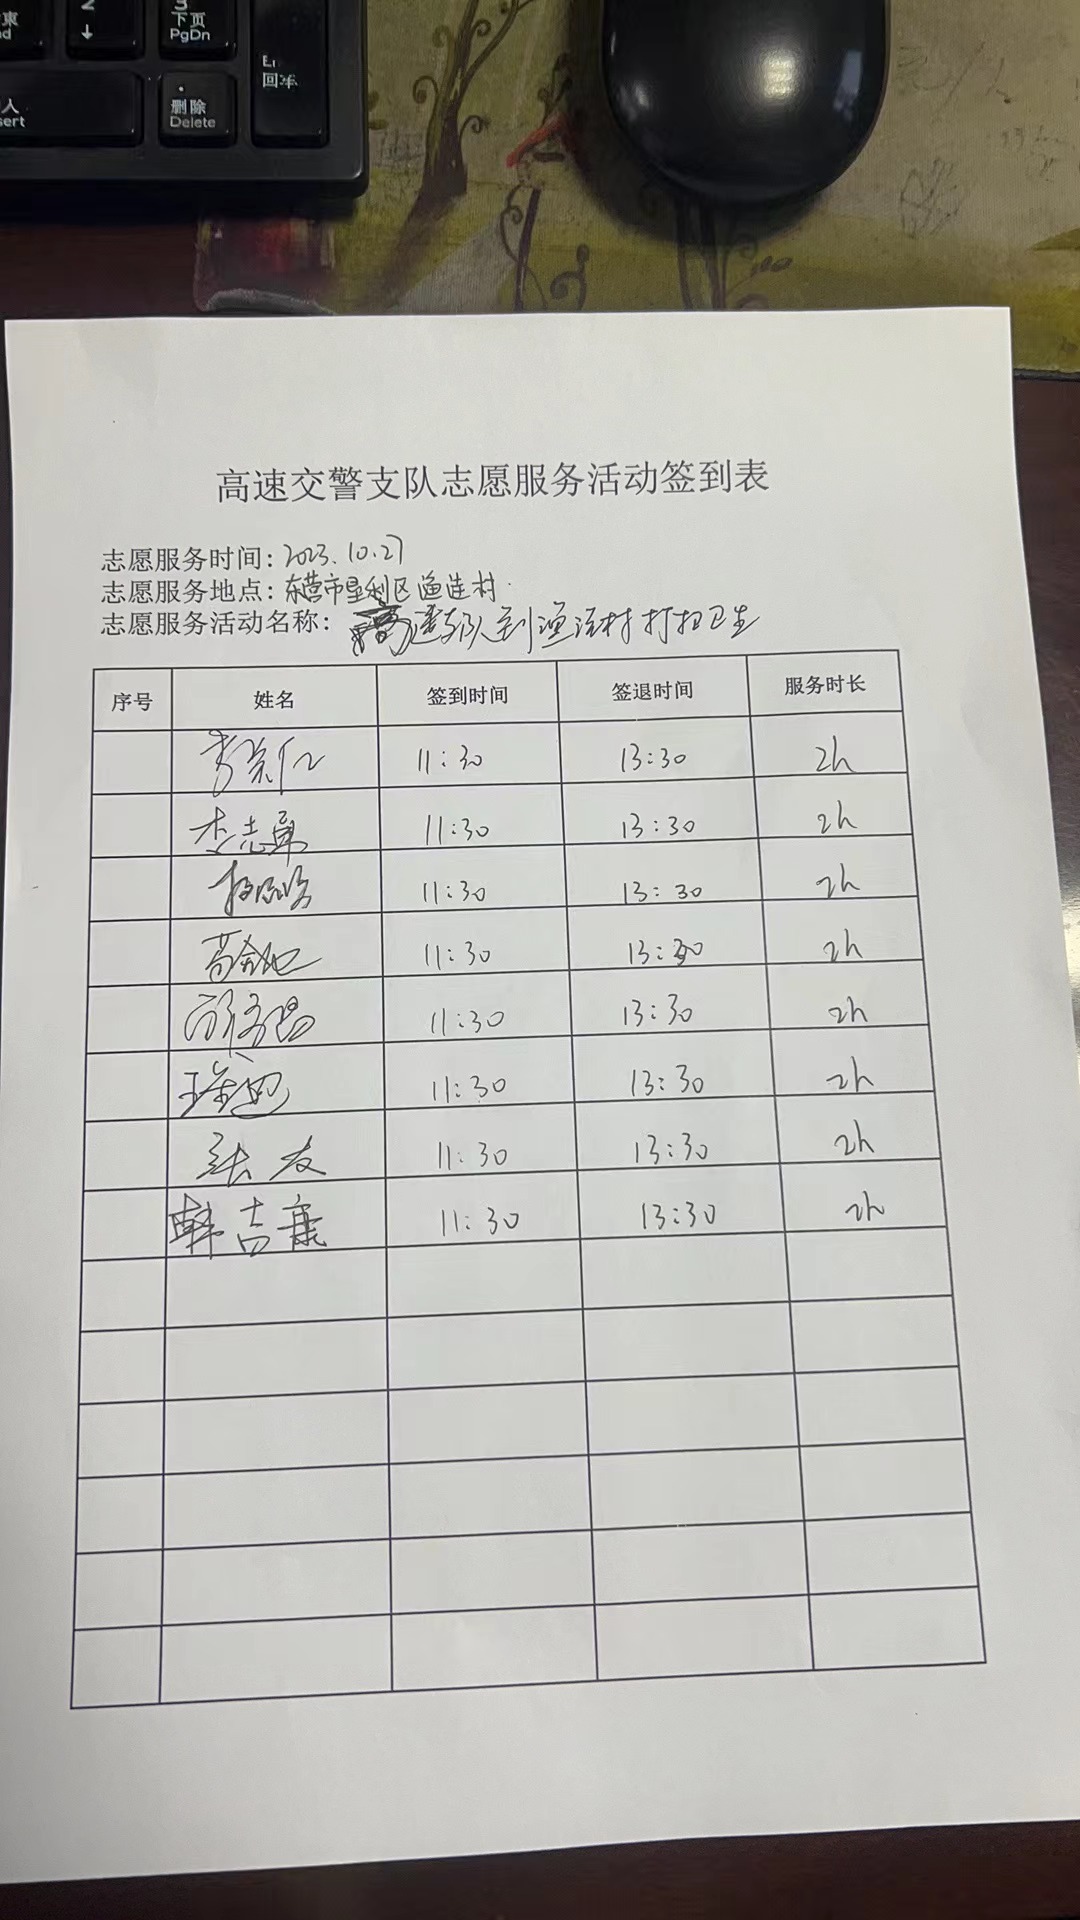 2
↓
3
下页
PgDn
删除
Delete
高速交警支队志愿服务活动签到表
志愿服务时间：2023.10.27
志愿服务地点：东营市垦利区渔洼村
志愿服务活动名称：高速支队到渔洼村打扫卫生
序号 姓名 签到时间 签退时间 服务时长
11:30 13:30 2h
李志军 11:30 13:30 2h
11:30 13:30 2h
11:30 13:30 2h
11:30 13:30 2h
11:30 13:30 2h
张友 11:30 13:30 2h
韩吉康 11:30 13:30 2h